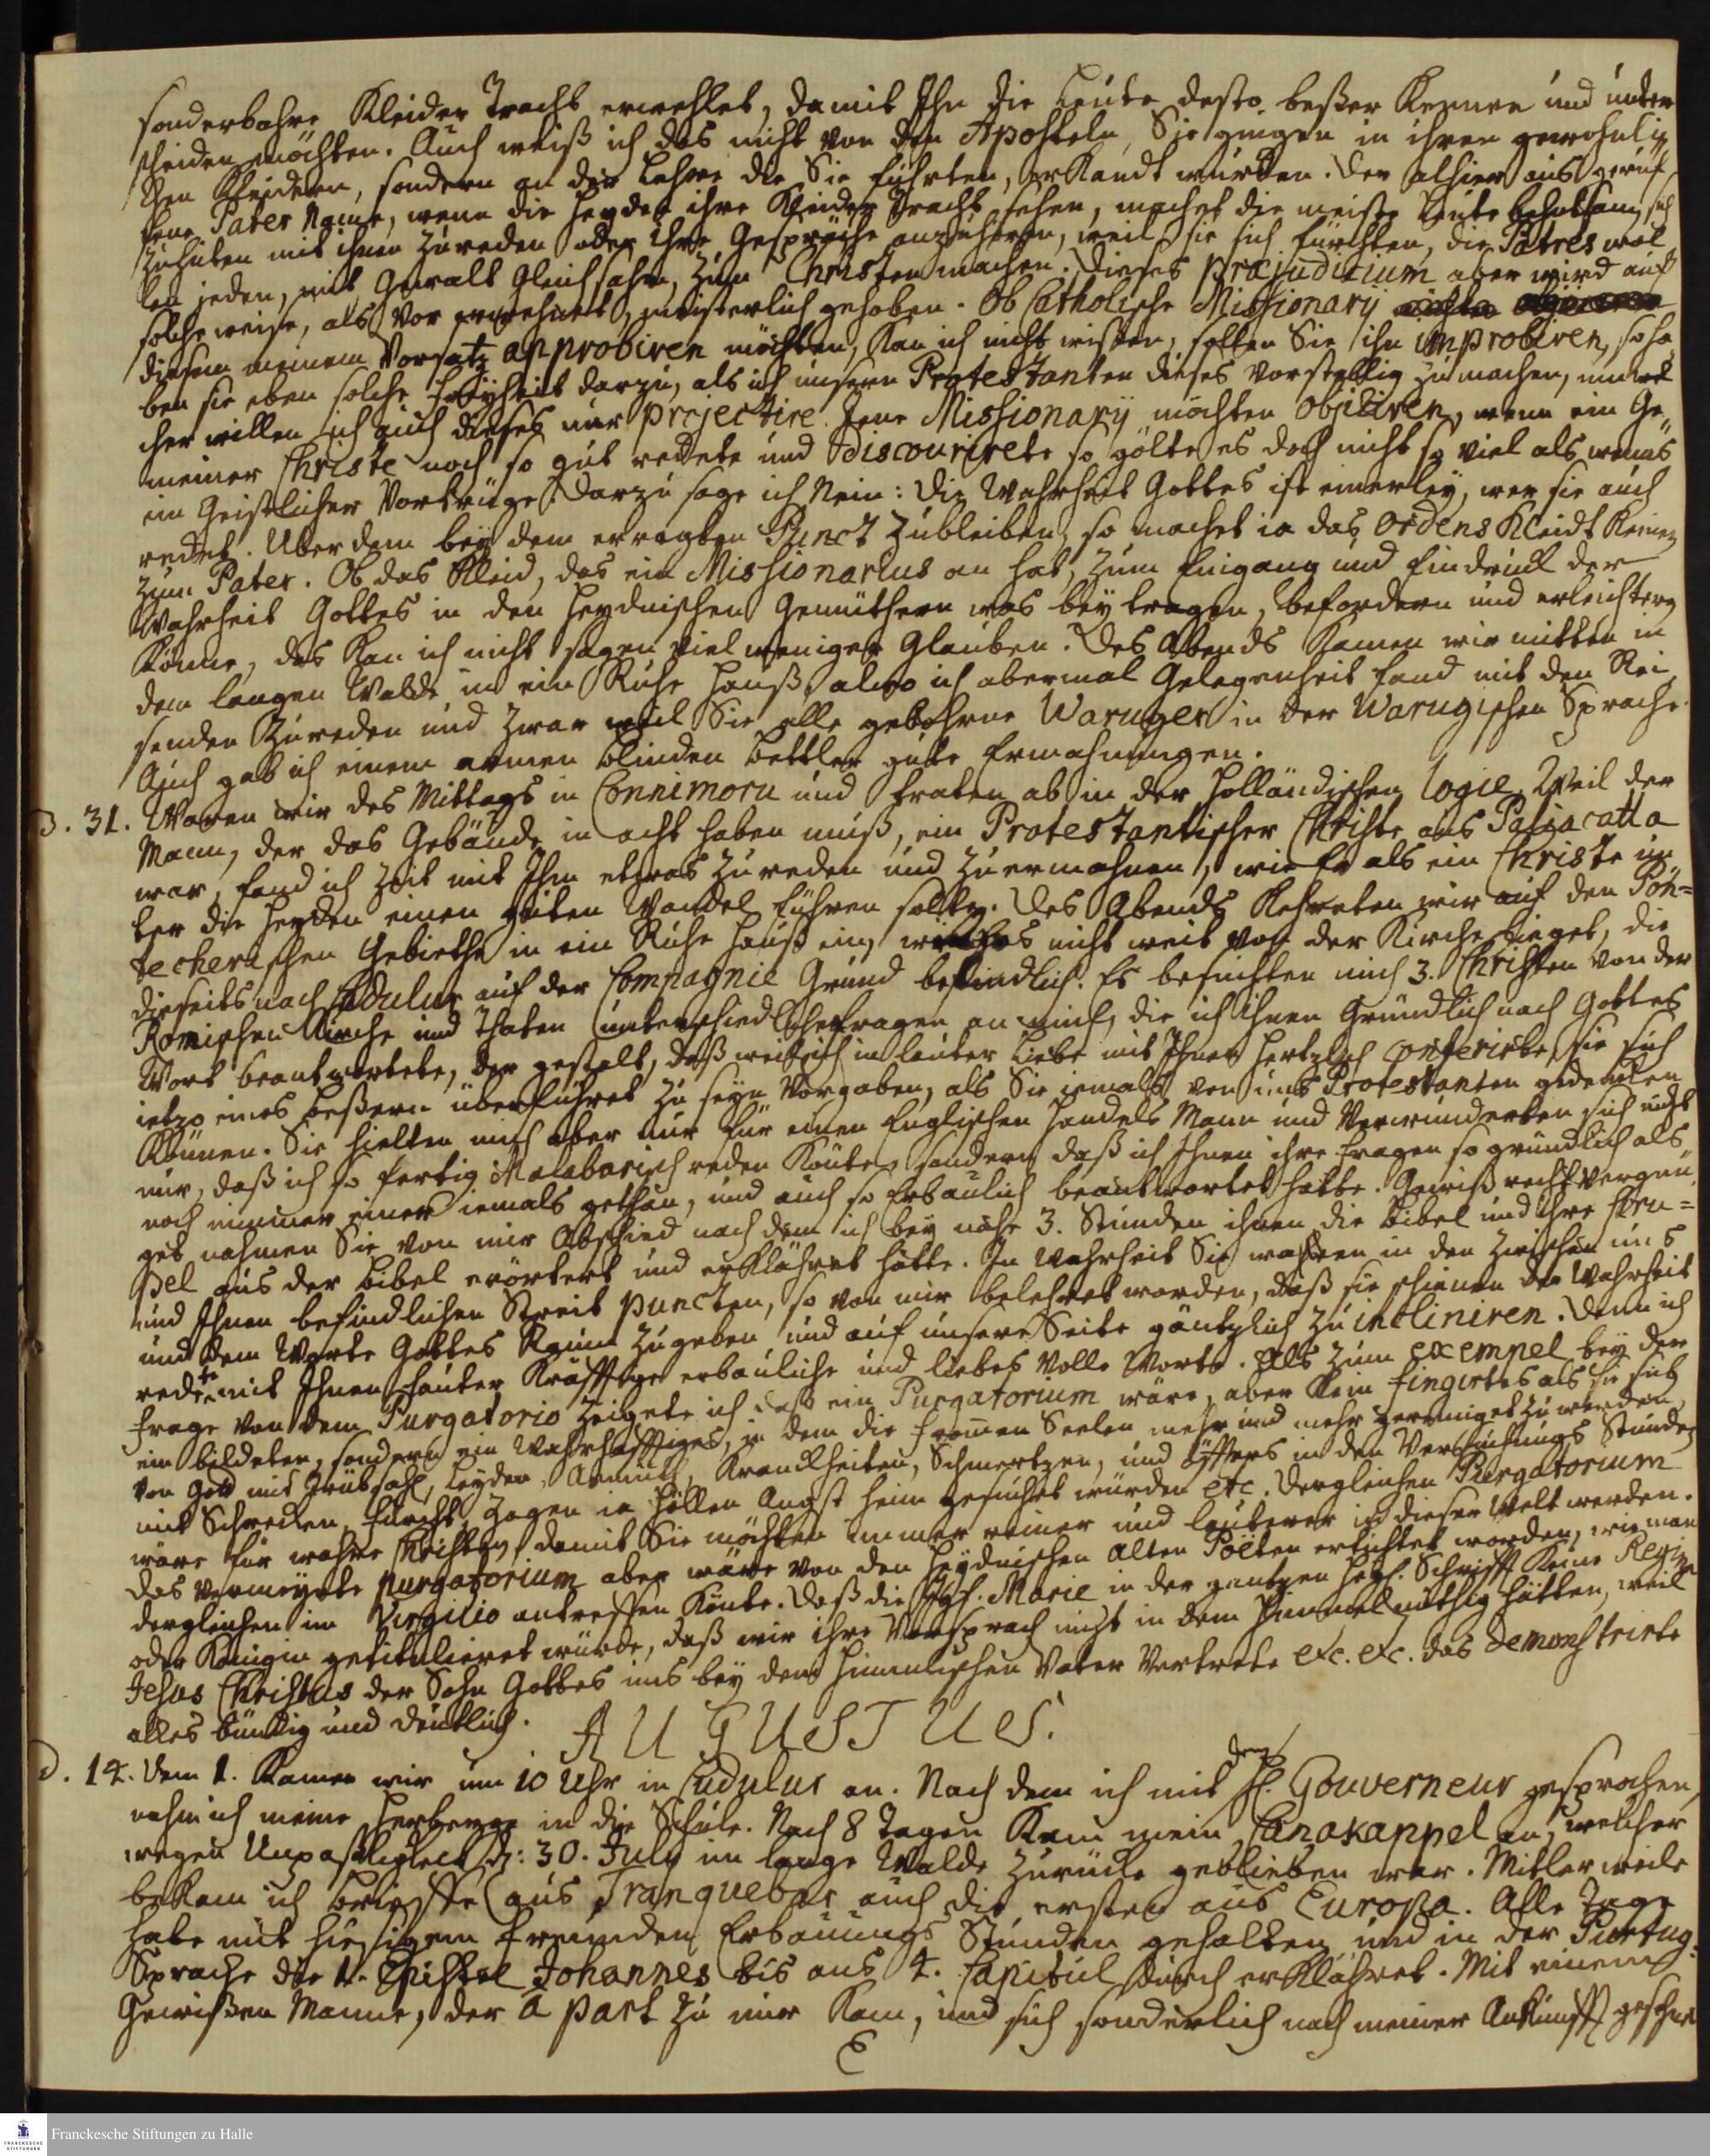 sonderbahre Kleider Tracht erwehlet, damit Ihn die Leute desto beßer Kennen und unter
scheiden möchten. Auch weiß ich das nicht von den Aposteln, Sie gingen in ihren gewohnli
chen Kleidern, sondern an der Lehre die Sie führten, erKandt wurden. Der alhier aus geruf
fene Pater Name, wenn die Heyden ihre Kleider Tracht sehen, machet die meiste Leute behutsam, sich
zuhüten mit ihnen zureden oder ihre Gespräche anzuhören, weil sie sich fürchten, die Patres wol
len jeden, mit Gewalt gleichsahm, zum Christen machen. Dieses præjudicium aber wird auf
solche weise, als vor erwehnet, meisterlich gehoben. Ob Catholische Missionarij
diesen meinen Vorsatz approbiren möchten, Kan ich nicht wißen, solten Sie ihn improbiren, so ha
ben sie eben solche Freyheit darzu, als ich unsern Protestanten dieses vorstellig zu machen, um wel
cher willen ich auch dieses nur projectire. Jene Missionarij möchten objiciren, wenn ein Ge
meiner Christe noch so gut redete und discourirete so gölte es doch nicht so viel als wenns
ein Geistlicher Vortrüge. Darzu sage ich Nein: die Wahrheit Gottes ist einerley, wer sie auch
redet. Uber dem bey dem erregten Punct zubleiben, so machet ia das OrdensKleidt Keinen
zum Pater. Ob das Kleid, das ein Missionarius an hat, zum Eingang und Eindruck der
Wahrheit Gottes in den Heydnischen Gemüthern was beytragen, befordern und erleichtern
Könne, das Kan ich nicht sagen viel weniger Glauben. Des Abends Kamen wir mitten in
dem langen Walde in ein Ruhe Hauß, alwo ich abermal Gelegenheit fand mit den Rei
senden Zureden und zwar weil Sie alle gebohrne Waruger in der Warugischen Sprache.
Auch gab ich einem armen blinden Bettler gute Ermahnungen.
D. 31. Waren wir des Mittags in Connimoru und traten ab in der Holländischen Logie. Weil der
Mann, der das Gebäude in acht haben muß, ein Protestantischer Christe aus Paljacatta
war, fand ich Zeit mit Ihm etwas zu reden und zu ermahnen, wie Er als ein Christe un
ter die Heyden einen guten Wandel führen solte. Des Abends Kehreten wir auf den Pöh-
techerischen Gebiethe in ein Ruhe Hauß ein, welches nicht weit von der Kirche lieget, die
dieseits nach Cudulur auf der Compagnie Grund befindlich. Es besuchten mich 3. Christen von der
Römischen Kirche und thaten unterschiedliche fragen an mich, die ich Ihnen Gründlich nach Gottes
Wort beantwortete, der gestalt, daß weil ich in lauter Liebe mit Ihnen hertzlich conferirte, sie sich
ietzo eines beßern überführet zu seyn vorgaben, als Sie iemals von uns Protestanten gedencken
Können. Sie hielten mich aber nur für einen Englischen Handels Mann und Verwunderten sich nicht
nur, daß ich so fertig Malabarisch reden Könte, sondern daß ich Ihnen ihre fragen so gründlich als
noch immer einer iemals gethan, und auch so Erbaulich beantwortet hätte. Gewiß recht vergnü
get nahmen Sie von mir Abschied nach dem ich bey nahe 3. Stunden ihnen die Bibel und ihre Scru-
pel aus der Bibel erörtert und erKlähret hätte. In Wahrheit Sie waren in den zwischen uns
und Ihnen befindlichen Streit puncten, so von mir belehret worden, daß sie schienen der Wahrheit
und dem Worte Gottes Raum zugeben und auf unsere Seite gäntzlich zu incliniren. Denn ich
redete mit Ihnen lauter Kräfftige erbauliche und liebes volle Worte. Als zum exempel bey der
frage von dem Purgatorio zeigete ich daß ein Purgatorium wäre, aber Kein fingirtes als sie sich
ein bildeten, sondern ein Wahrhafftiges, in dem die fromen Seelen mehr und mehr gereiniget zu werden
von Gott mit Trübsahl, Leyden, Armuth, Kranckheiten, Schmertzen, und öffters in den Versuchungs Stunden
mit Schrecken, furcht, zagen ia Höllen Angst heim gesuchet würden etc. dergleichen Purgatorium
wäre für wahre Christen, damit Sie möchten immer reiner und lauterer in dieser Welt werden.
Das vermeynte purgatorium aber wäre von den Heydnischen Alten Poëten ertichtet worden, wie man
dergleichen im Virgilio antreffen Könte. Daß die Hhl. Marie in der gantzen Heyl. Schrifft Keine Regina
oder Königin getituliret würde, daß wir ihre Vorsprach nicht in dem Himmel nöthig hätten, weil
Jesus Christus der Sohn Gottes uns bey dem Himmlischen Vater Vertrete etc. etc. das demonstrirte
alles bündig und deutlich.
AUGUSTUS.
D. 14. Dem 1. Kamen wir um 10 Uhr in Cudulur an. Nach dem ich mit dem H. Gouverneur gesprochen,
nahm ich meine Herberge in die Schule. Nach 8 Tagen Kam mein Canakappel an, welcher
wegen Unpaßligkeit d: 30. July im lange Walde zurücke geblieben war. Mitlerweile
beKam ich Brieffe aus Tranquebar auch die ersten aus Europa. Alle Tage
habe mit hiesigem Freunden Erbauungs Stunden gehalten und in der Portug:
Sprache die 1. Epistel Johannes bis ans 4. Capitul durch erKläret. Mit einem
Gewißen Manne, der à part zu mir Kam, und sich sonderlich nach meiner Ankunfft
E
Franckesche Stiftungen zu Halle